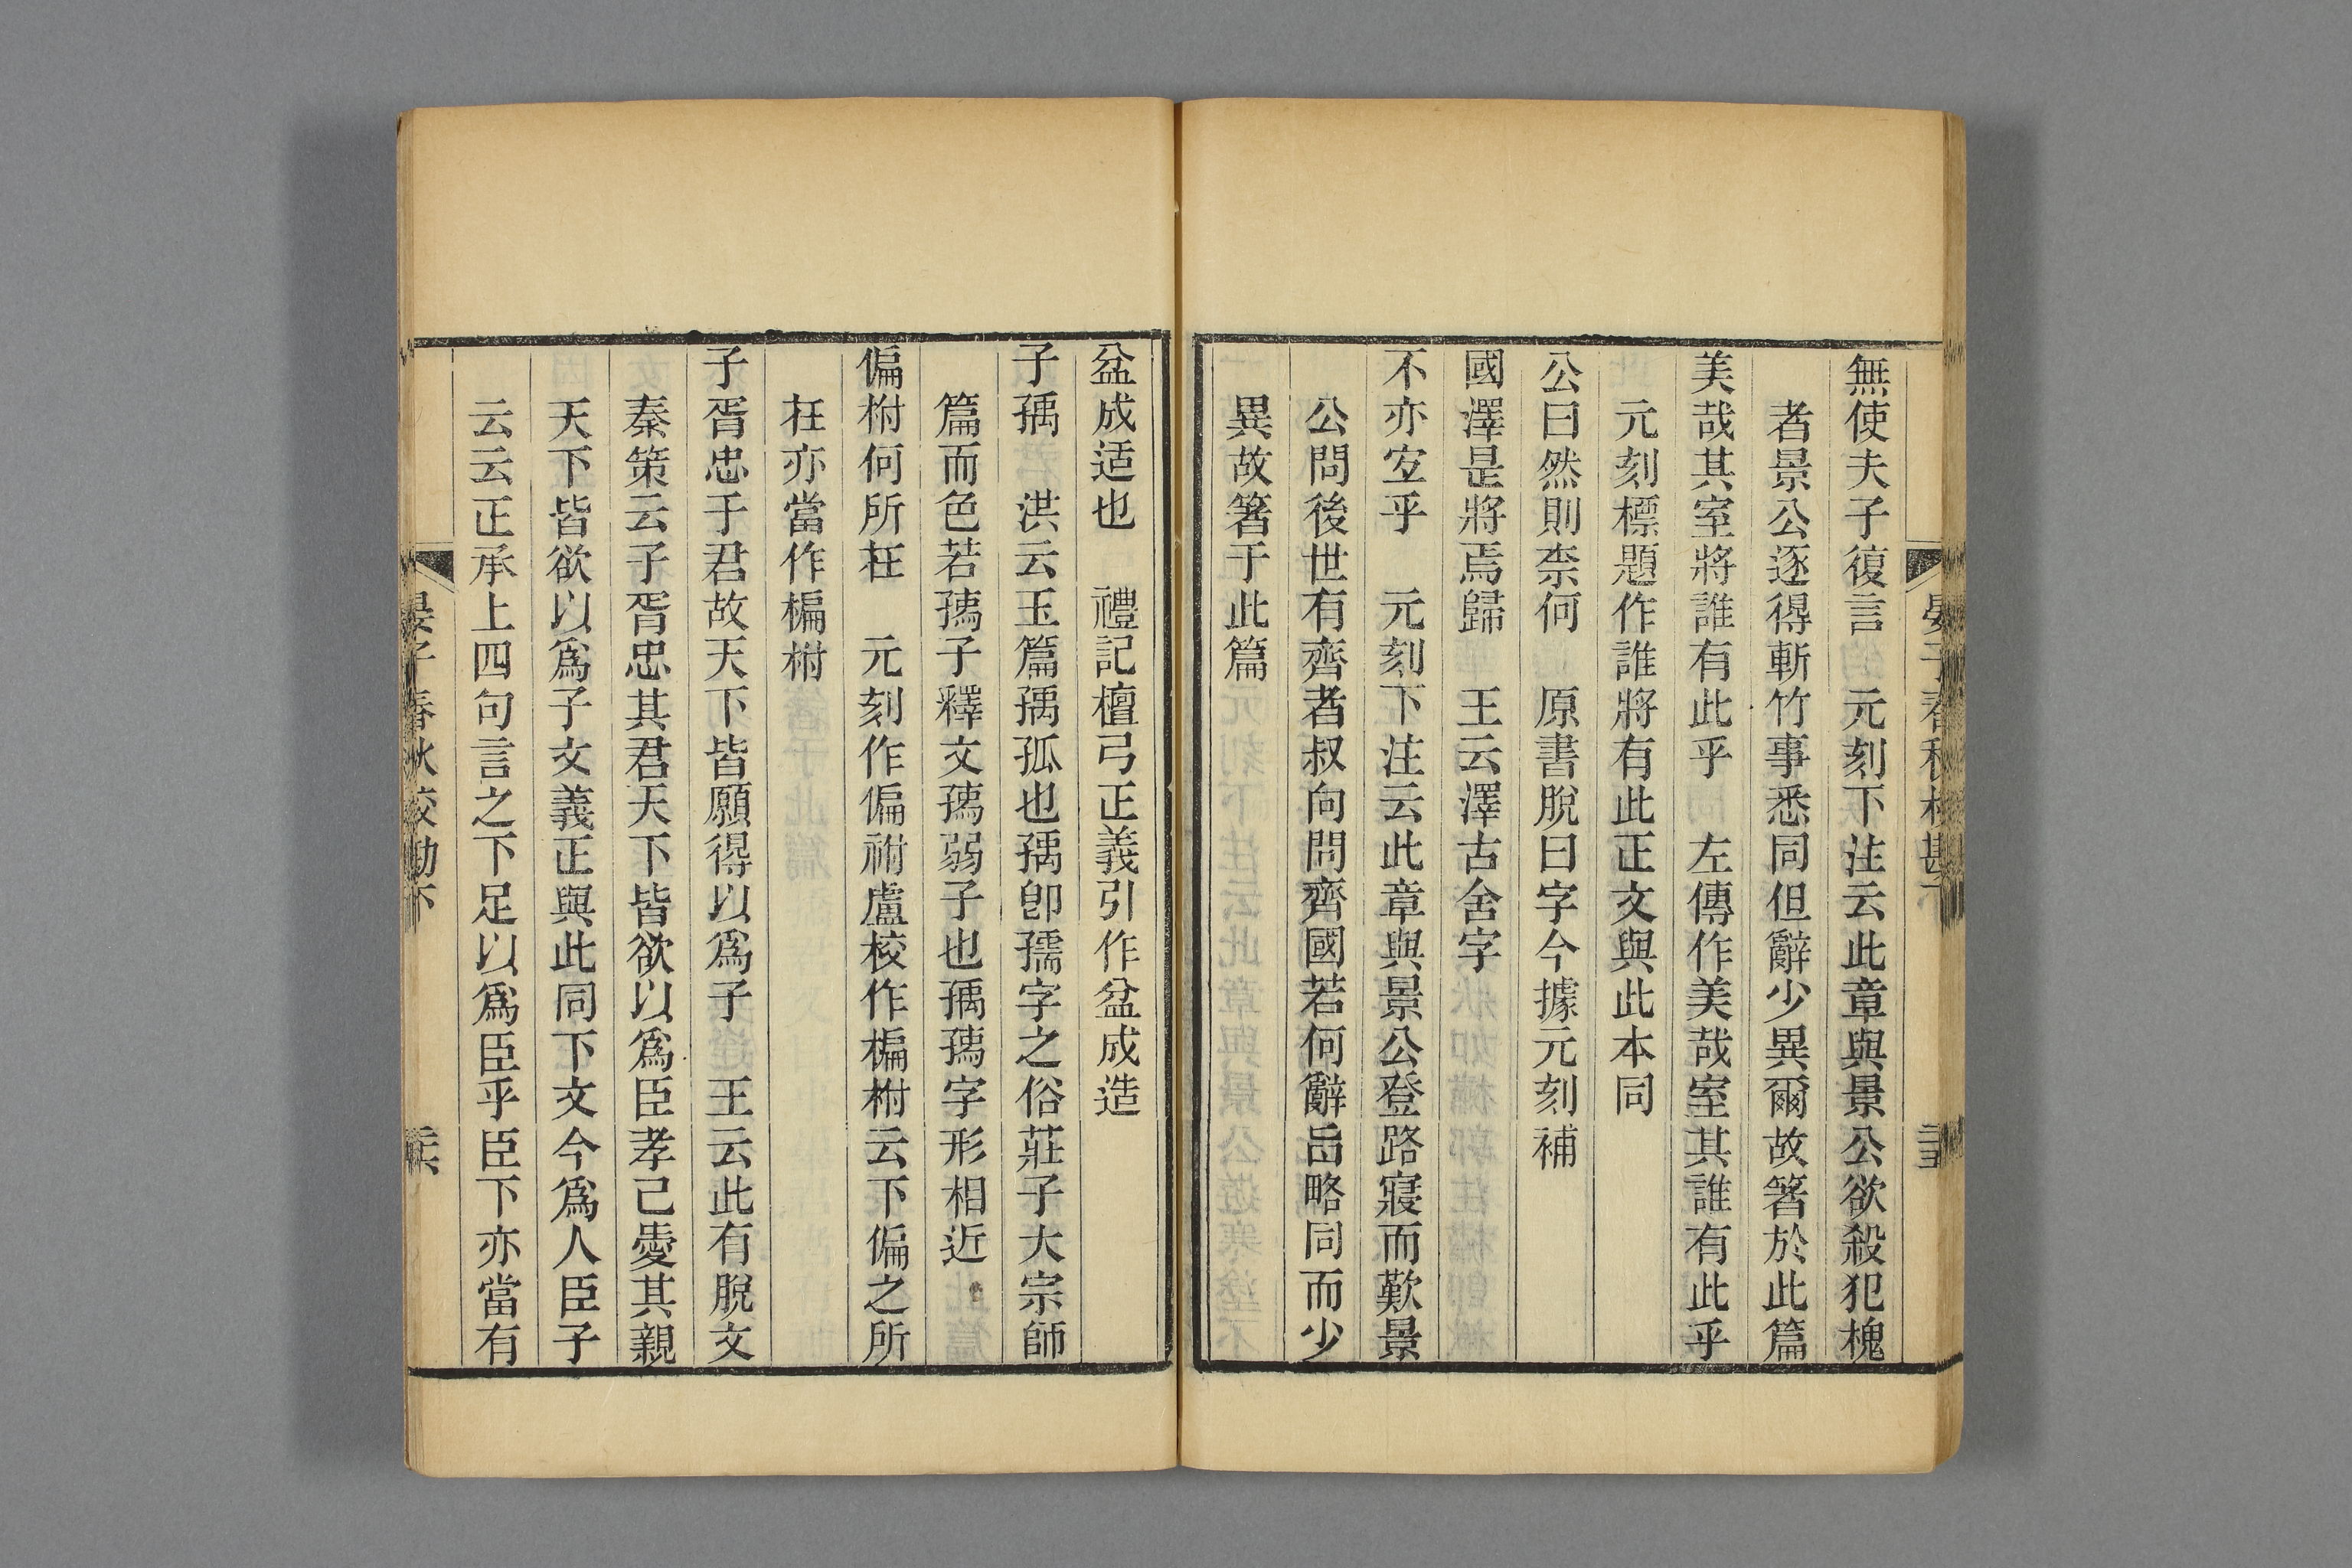 無使夫子復言　元刻下注云此章與景公欲殺犯槐
者景公逐得斬竹事悉同但辭少異爾故箸於此篇
美哉其室將誰有此乎　左傳作美哉室其誰有此乎
元刻標題作誰將有此正文與此本同
公曰然則柰何　原書脫曰字今據元刻補
國澤是將焉歸　王云澤古舍字
不亦宐乎　元刻下注云此章與景公登路寢而歎景
公問後世有齊者叔向問齊國若何辭恉略同而少
異故箸于此篇
盆成适也　禮記檀弓正義引作盆成造
子㺄　洪云玉篇㺄孤也㺄卽孺字之俗莊子大宗師
篇而色若孺子釋文孺弱子也㺄孺字形相近
偏柎何所在　元刻作偏祔盧校作楄柎云下偏之所
在亦當作楄柎
子胥忠于君故天下皆願得以爲子　王云此有脫文
秦策云子胥忠其君天下皆欲以爲臣孝己愛其親
天下皆欲以爲子文義正與此同下文今爲人臣子
云云正承上四句言之下足以爲臣乎臣下亦當有
晏子春秋校勘下